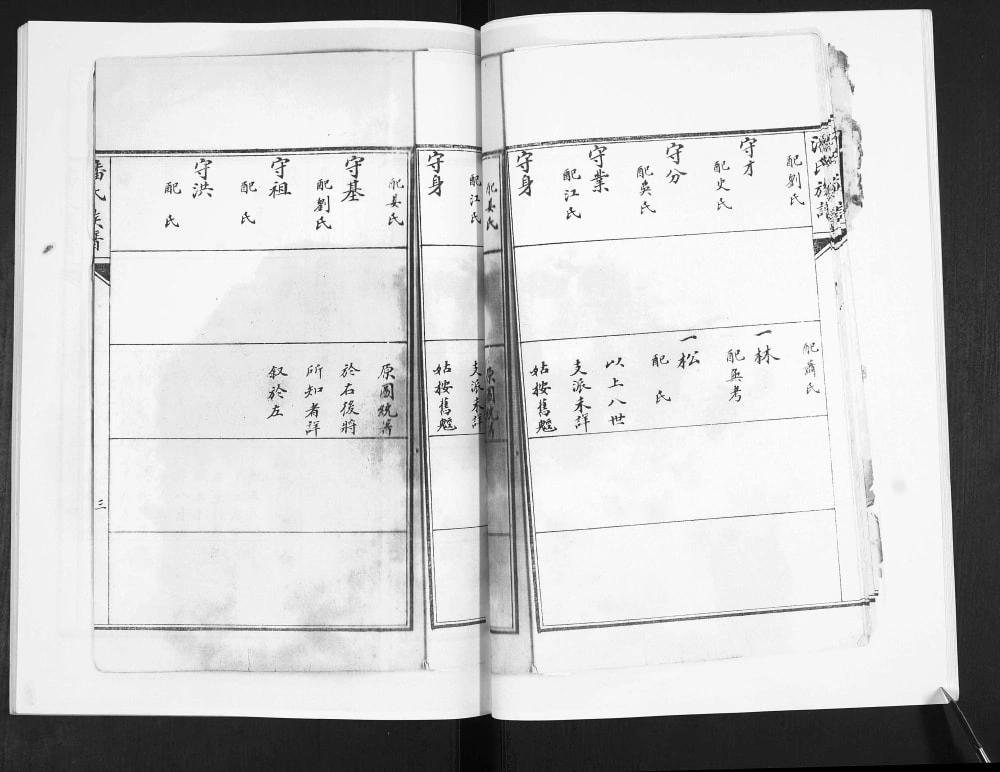 潘氏族譜
配劉氏
守才
配史氏
守分
配吳氏
守業
配江氏
守身
配蕭氏
一林
配無考
一松
配 氏
以上八世
支派未詳
姑按舊
配姜氏
原圖
配江氏
守身
支派未詳
姑按舊
配姜氏
守基
配劉氏
守祖
配 氏
守洪
配 氏
原圖統
於右後將
所知者詳
叙於左
潘氏族譜
三